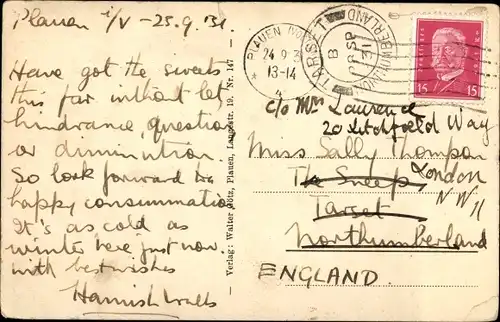 Plauen i/V - 25.9.31.
Have got the sweats
this far without let,
hindrance, question
or diminution.
So look forward to
happy consummation
It's as cold as
winter here just now.
with best wishes
Hamish Walls
Verlag: Walter Götz, Plauen, Langestr. 19, Nr. 147
PLAUEN (VOGTL
24.9.3
13-14
* 4
TARSET
B
SP
31
NORTHUMBERLAND
15 15
c/o Mrs Laurence
20 Litchfield Way
Miss Sally Thompson
The Sneep, London
Tarset N W 11
Northumberland
ENGLAND.